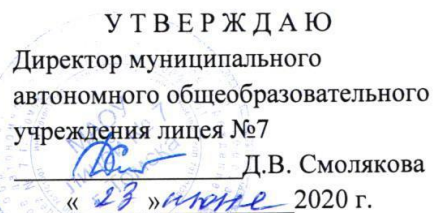 У Т В Е Р Ж Д А Ю
Директор муниципального
автономного общеобразовательного
учреждения лицея №7
Д.В. Смолякова
« 23 » июня 2020 г.